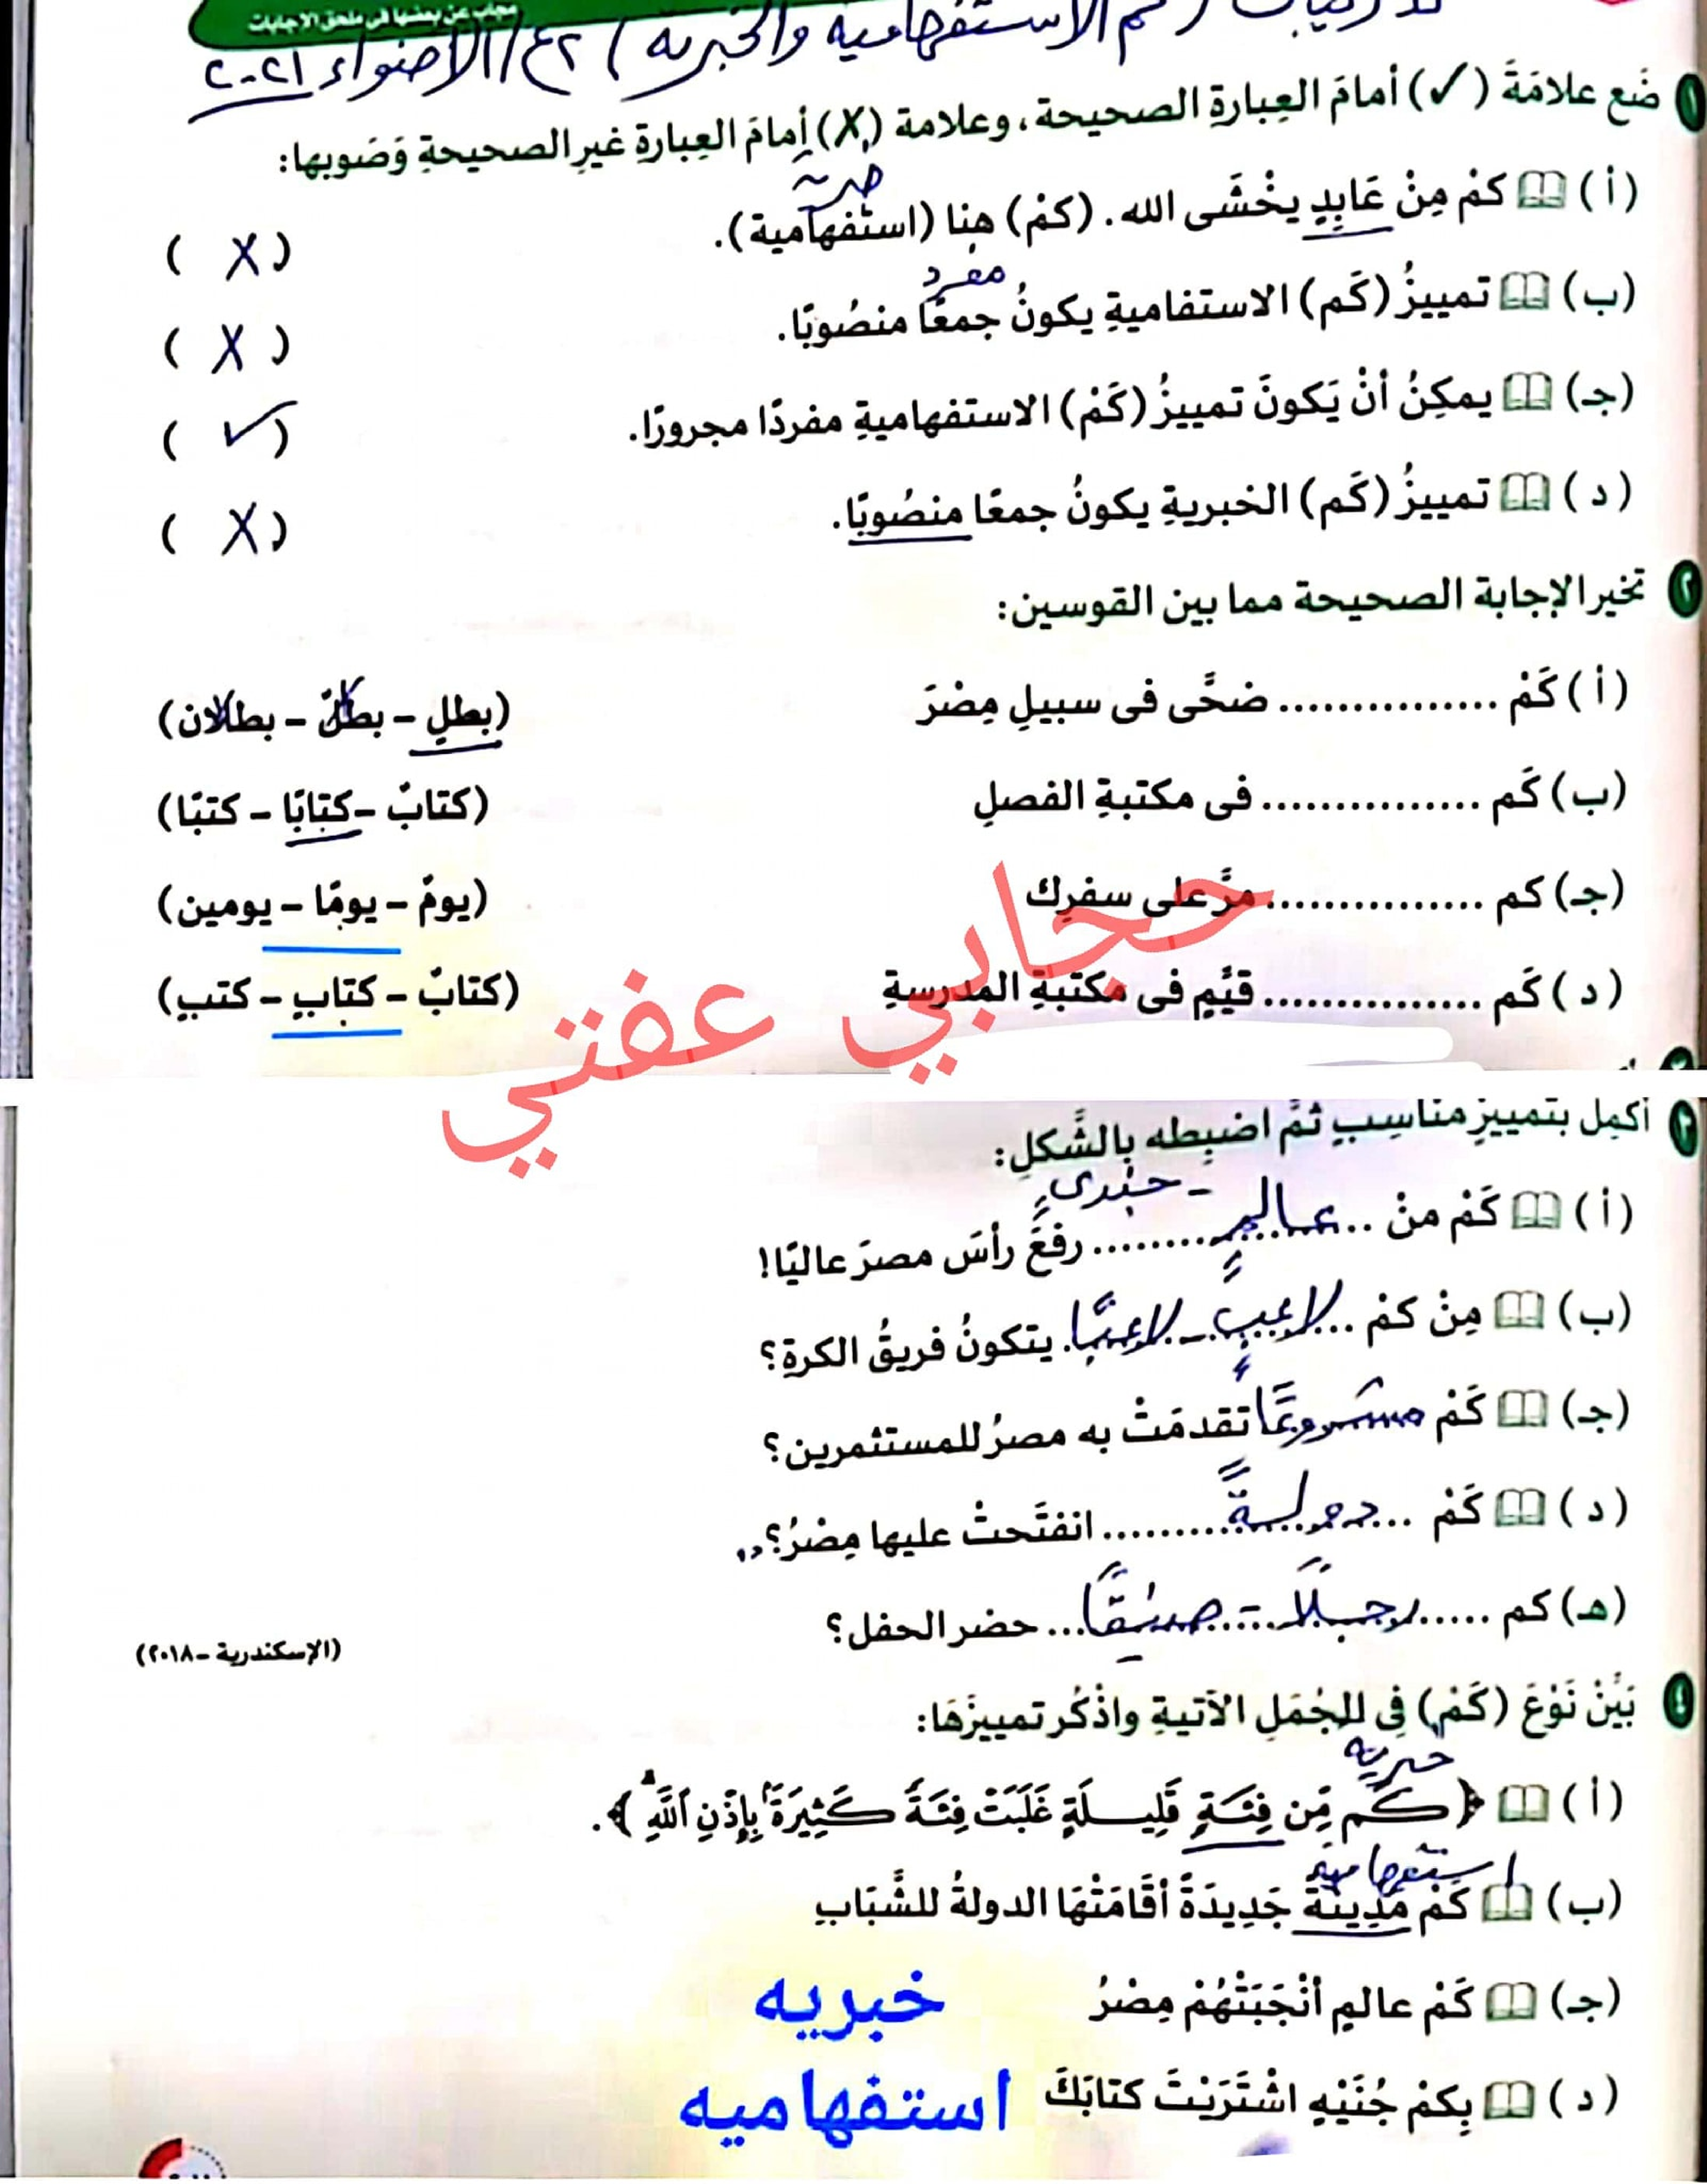 مجاب عن بعضها فى ملحق الإجابات
تدريبات (كم الاستفهامية والخبرية) ع٢/الأضواء ٢٠٢١
١ ضَع علامَةَ (✓) أمامَ العِبارةِ الصحيحة، وعلامة (X) أمامَ العِبارةِ غيرِ الصحيحةِ وَصَوبها:
خبرية
(أ) كمْ مِنْ عَابِدٍ يخْشَى الله. (كمْ) هنا (استفهامية). (X)
مفرد
(ب) تمييزُ (كَم) الاستفاميةِ يكونُ جمعًا منصُوبًا. (X)
(جـ) يمكِنُ أنْ يَكونَ تمييزُ (كَمْ) الاستفهاميةِ مفردًا مجرورًا. (✓)
(د) تمييزُ (كَم) الخبريةِ يكونُ جمعًا منصُوبًا. (X)
٢ تخير الإجابة الصحيحة مما بين القوسين:
(أ) كَمْ ............... ضحَّى فى سبيلِ مِصْرَ (بطلٍ – بطلٌ – بطلان)
(ب) كَم ............... فى مكتبةِ الفصلِ (كتابٌ – كتابًا – كتبًا)
(جـ) كم ............... مرَّ على سفرِك (يومٌ – يومًا – يومين)
(د) كَم ............... قيِّمٍ فى مكتبةِ المدرسةِ (كتابٌ – كتابٍ – كتبٍ)
حجابي عفتي
٣ أكمِل بتمييزٍ مناسِبٍ ثمَّ اضبِطه بالشَّكلِ:
(أ) كَمْ منْ ..عالمٍ – جندىٍ.. رفعَ رأسَ مصرَ عاليًا!
(ب) مِنْ كمْ ..لاعبٍ – لاعبًا.. يتكونُ فريقُ الكرةِ؟
(جـ) كَمْ مشروعًا تقدمَتْ به مصرُ للمستثمرين؟
(د) كَمْ ..دولةً.. انفتَحتْ عليها مِصْرُ؟
(هـ) كم ..رجلًا – صديقًا.. حضر الحفل؟ (الإسكندرية – ٢٠١٨)
٤ بَيِّنْ نَوْعَ (كَمْ) فِى الجُمَلِ الآتيةِ واذْكُر تمييزَهَا:
خبرية
(أ) ﴿كَم مِّن فِئَةٍ قَلِيلَةٍ غَلَبَتْ فِئَةً كَثِيرَةً بِإِذْنِ اللَّهِ﴾.
استفهامية
(ب) كَمْ مَدِينَةً جَدِيدَةً أقَامَتْهَا الدولةُ للشَّبَابِ
(جـ) كَمْ عالمٍ أنْجَبَتْهُمْ مِصْرُ خبريه
(د) بِكمْ جُنَيْهٍ اشْتَرَيْتَ كتابَكَ استفهاميه